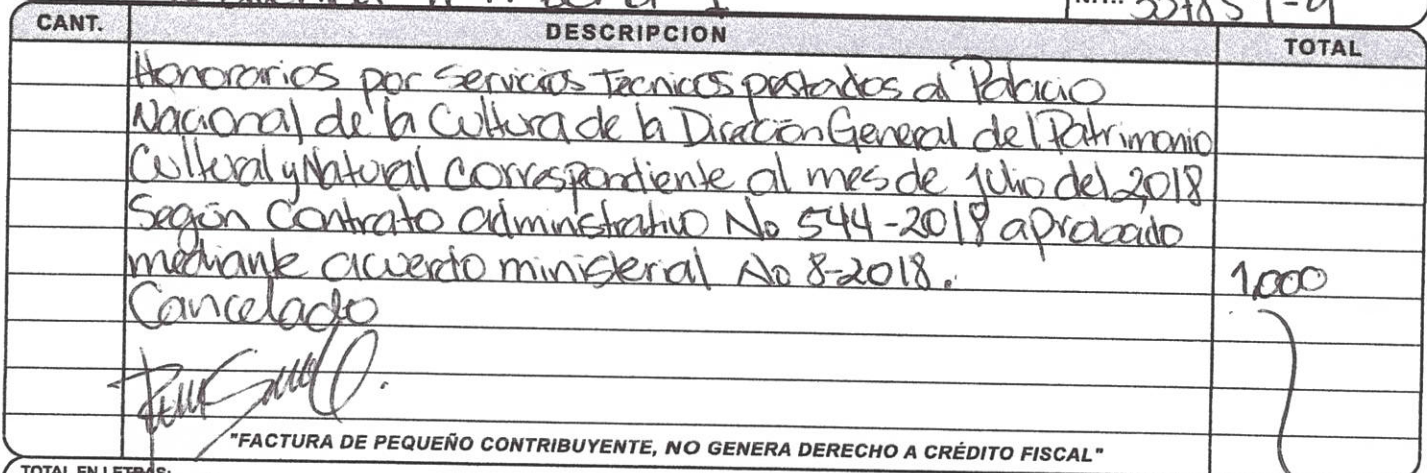 CANT. DESCRIPCION TOTAL
Honorarios por Servicios Tecnicos prestados al Palacio
Nacional de la Cultura de la Dirección General del Patrimonio
Cultural y Natural correspondiente al mes de julio del 2018
Según Contrato administrativo No 544-2018 aprobado
mediante acuerdo ministerial No 8-2018. 1,000
Cancelado
"FACTURA DE PEQUEÑO CONTRIBUYENTE, NO GENERA DERECHO A CRÉDITO FISCAL"
TOTAL EN LETRAS: